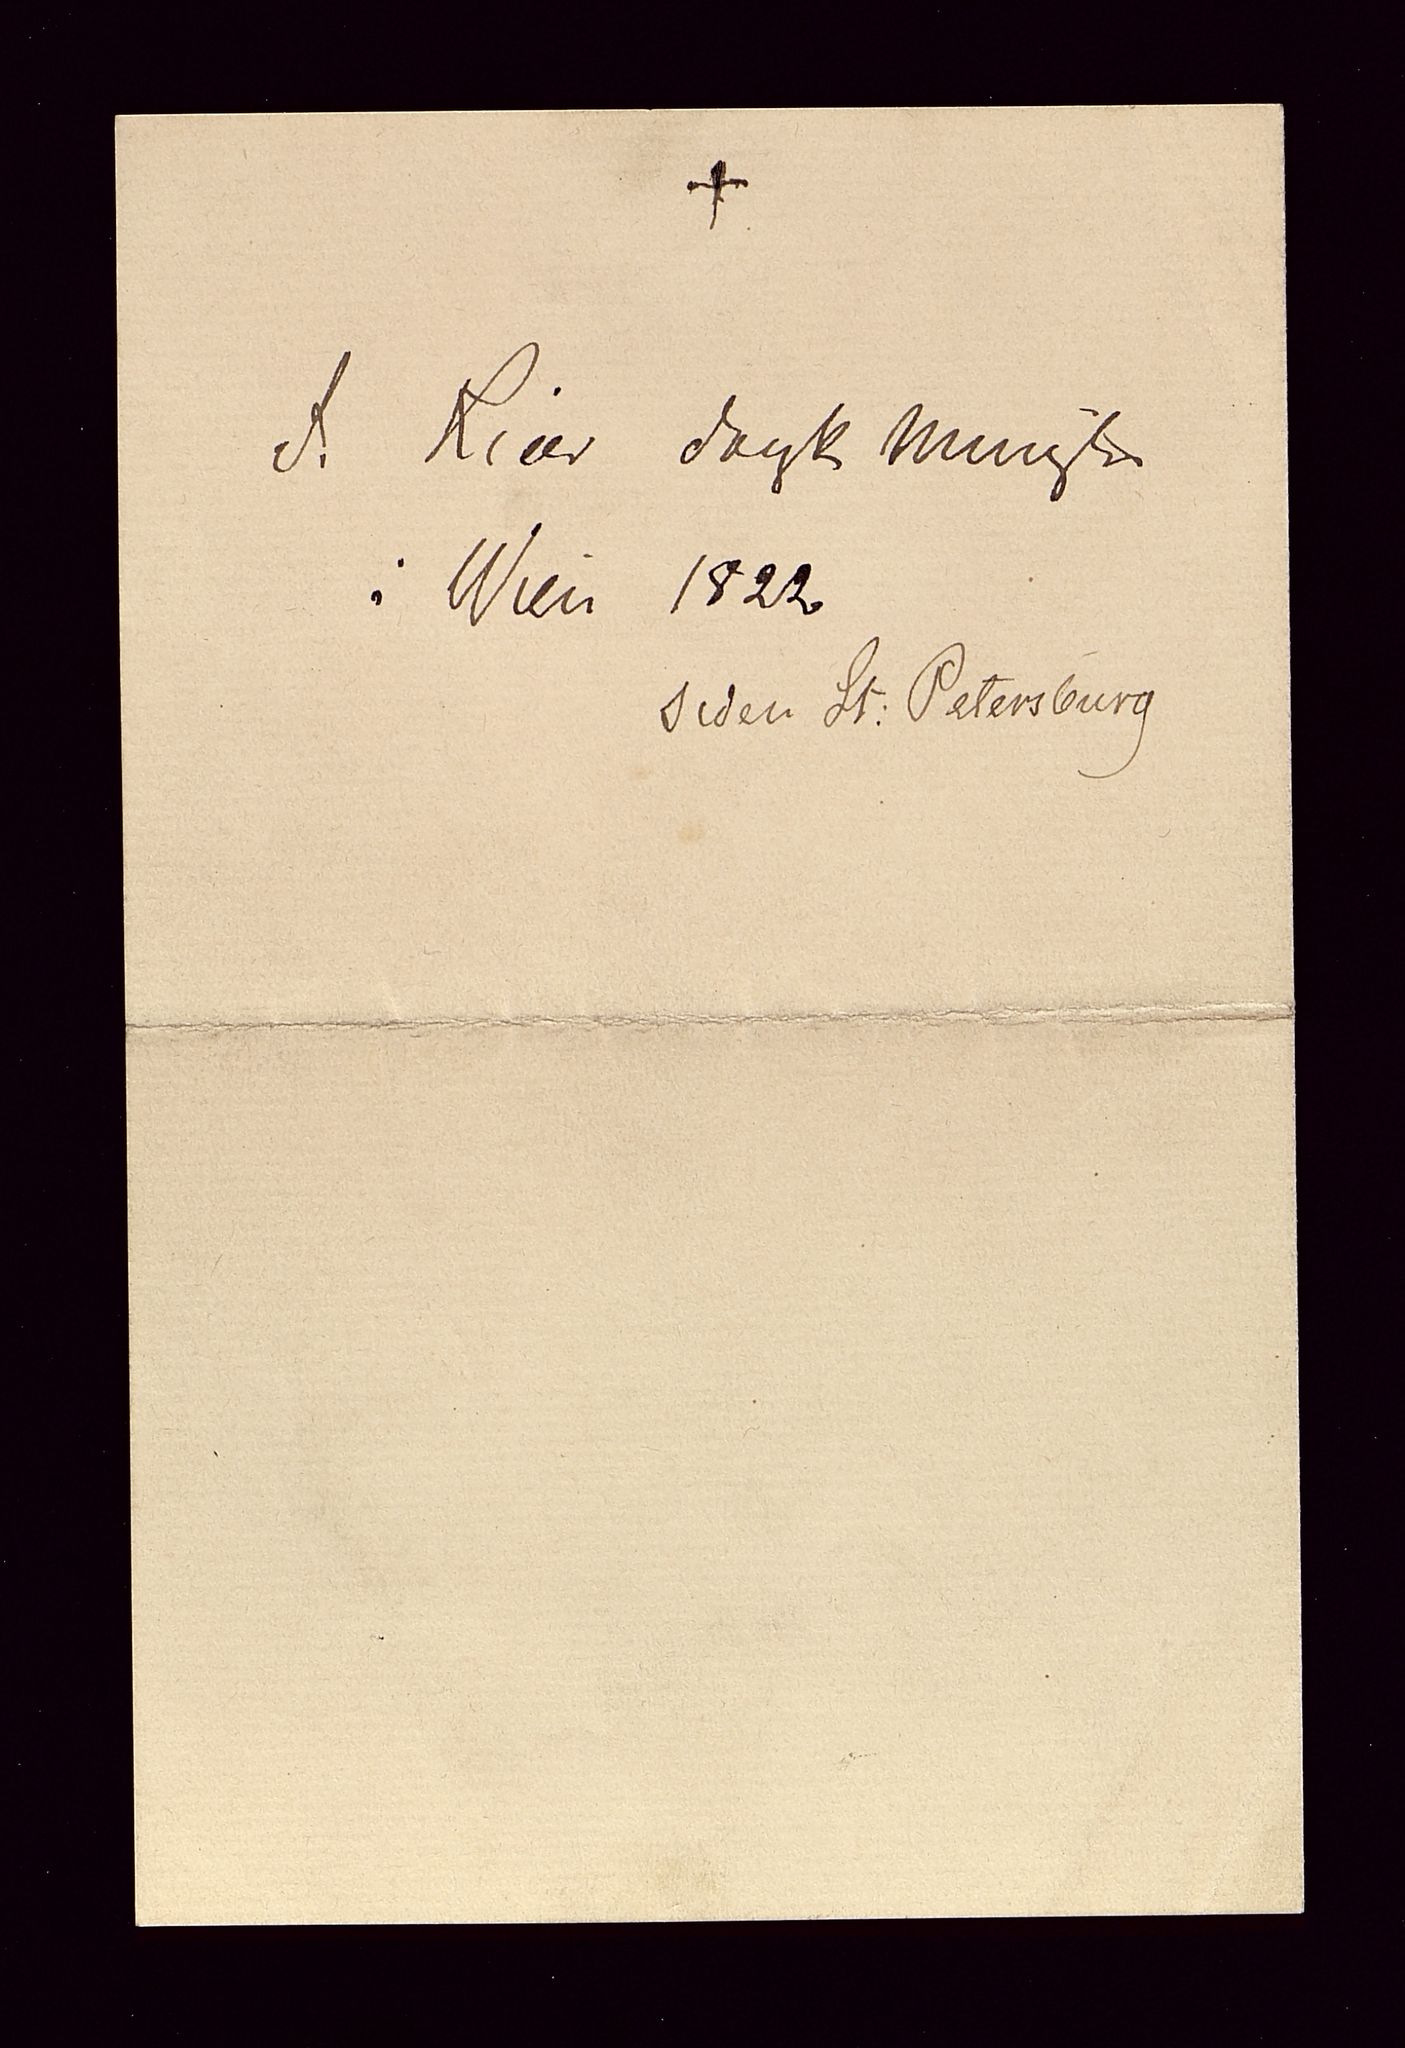 †
A. Kiær dansk Minister
i Wien 1822
siden St: Petersburg